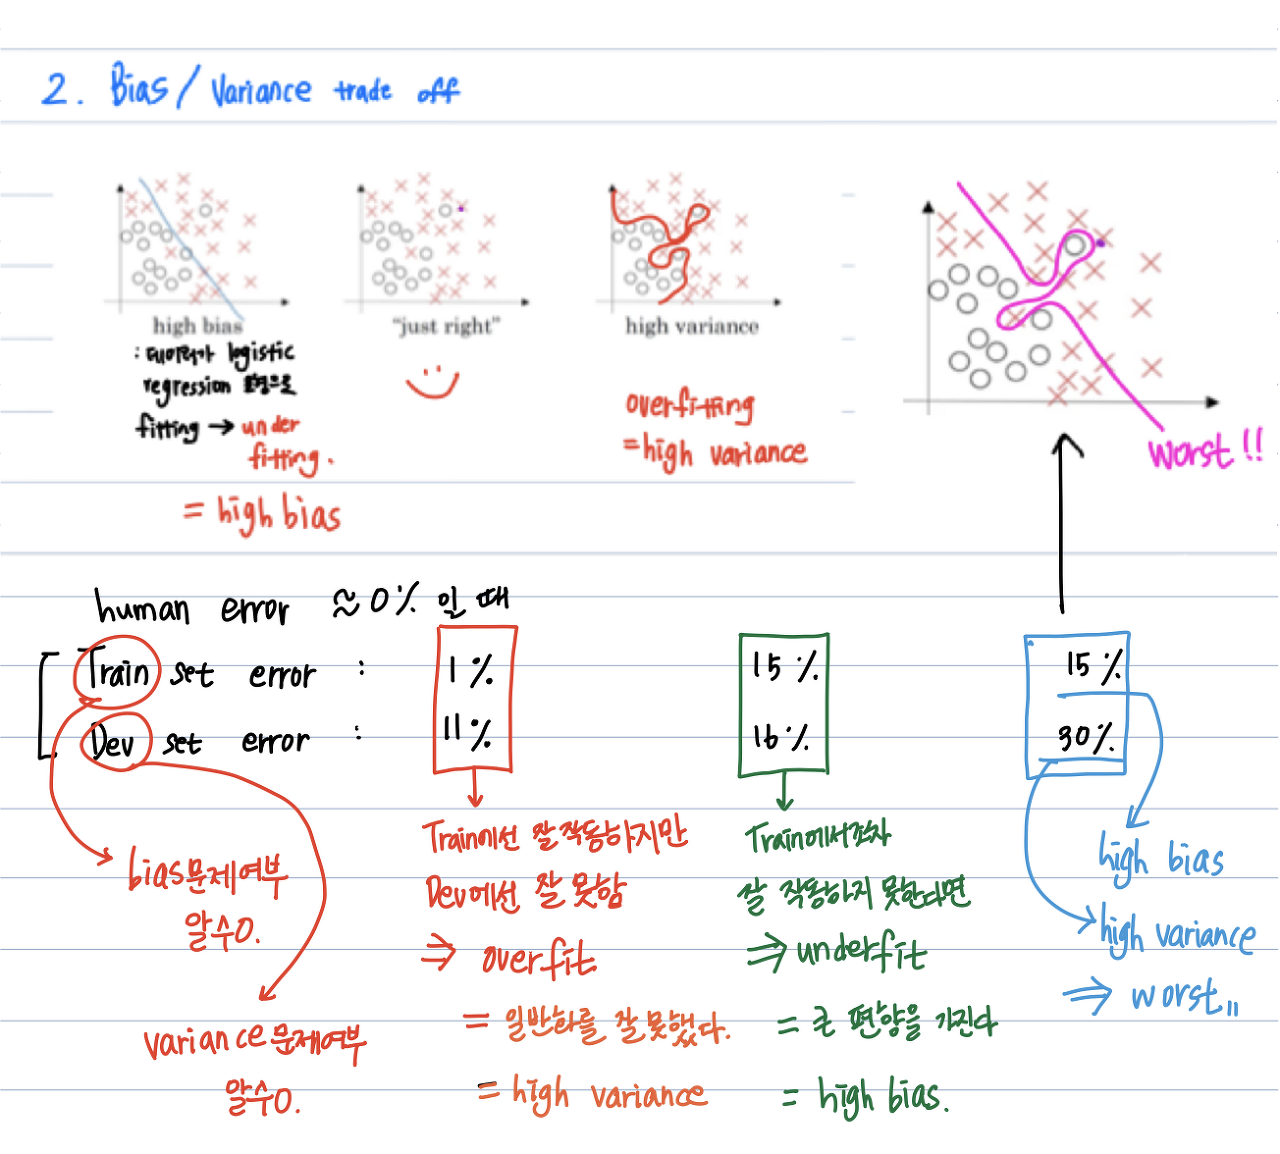 2. Bias / Variance trade off
high bias
"just right"
high variance
: 데이터가 logistic
regression 모형으로
fitting → under
fitting.
= high bias
overfitting
= high variance
worst!!
human error ≈ 0% 인 때
Train set error : 1% 15% 15%
Dev set error : 11% 16% 30%
bias문제여부
알수O.
variance문제여부
알수O.
Train에선 잘작동하지만
Dev에선 잘 못함
⇒ overfit
= 일반화를 잘못했다.
= high variance
Train에서조차
잘 작동하지 못한다면
⇒ underfit
= 큰 편향을 가진다
= high bias.
high bias
high variance
⇒ worst,,